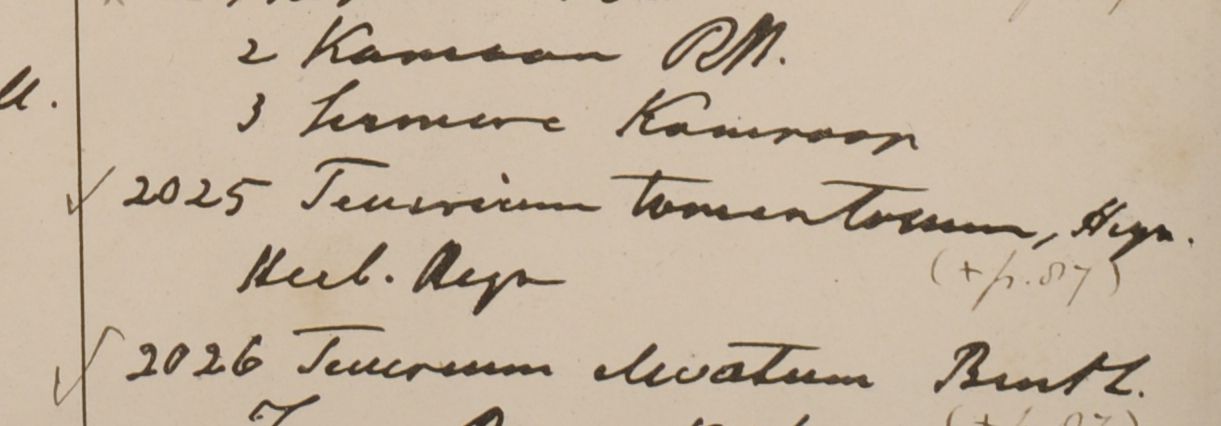 2 Kamaon RM.
3 Sirmore Kamroop
2025 Teucrium tomentosum, Heyn.
Herb. Heyn
(+ p. 87)
2026 Teucrium Benth.